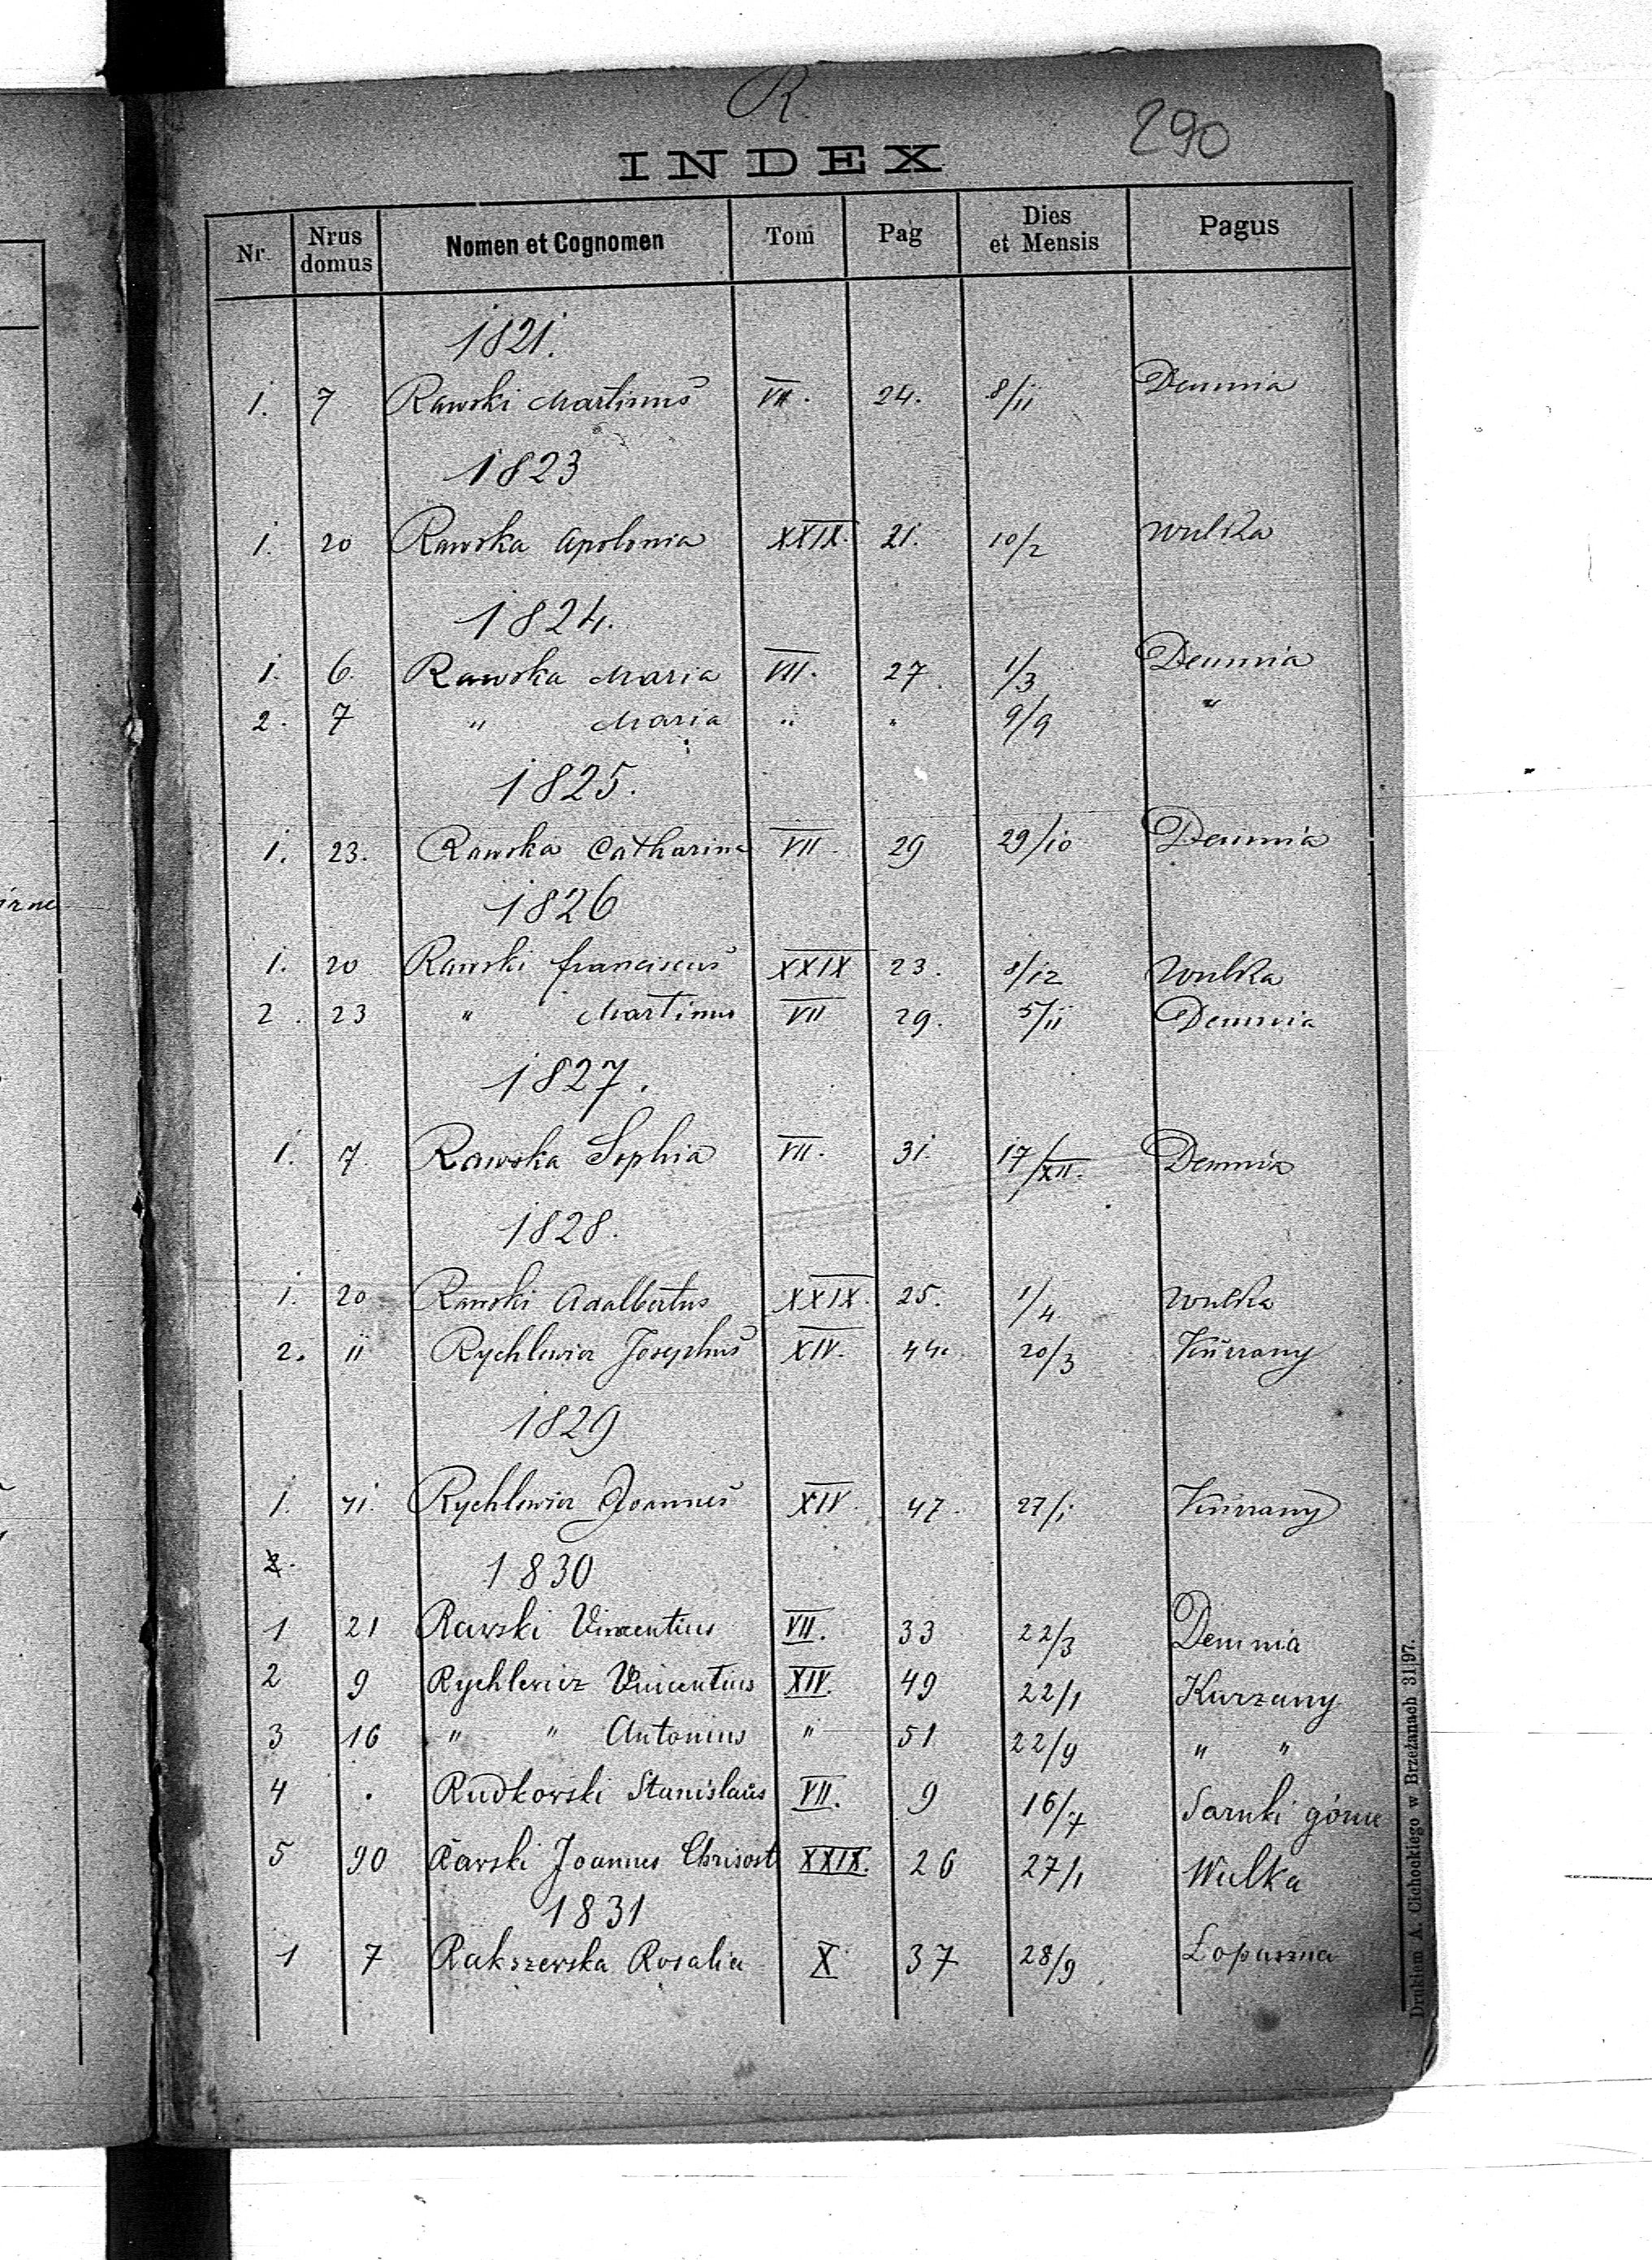 R.
290
INDEX
Nr. Nrus domus Nomen et Cognomen Tom Pag Dies et Mensis Pagus
1821.
1. 7 Rawski Martinus VII. 24. 8/11 Demnia
1823
1. 20 Rawska Apolonia XXIX. 21. 10/2 Wulka
1824.
1. 6. Rawska Maria VII. 27. 1/3 Demnia
2. 7 " Maria " " 9/9 "
1825.
1. 23. Rawska Catharina VII. 29 29/10 Demnia
1826
1. 20 Rawski Franciscus XXIX 23. 8/12 Wulka
2. 23 " Martinus VII 29. 5/11 Demnia
1827.
1. 7 Rawska Sophia VII. 31. 17/XII. Demnia
1828.
1. 20 Rawski Adalbertus XXIX. 25. 1/4. Wulka
2. 11 Rychlewicz Josephus XIV. 44. 20/3 Kurzany
1829
1. Rychlewicz Joannes XIV. 47. 27/1 Kurzany
2. 1830
1 21 Rawski Vincentius VII. 33 22/3 Demnia
2 9 Rychlewicz Vincentius XIV. 49 22/1 Kurzany
3 16 " " Antonius " 51 22/9 " "
4 . Rudkowski Stanislaus VII. 9 16/7 Sarnki górne
5 90 Rawski Joannes Chrisost XXIX. 26 27/1 Wulka
1831
1 7 Rakszewska Rosalia X 37 28/9 Łopuszna
Drukiem A. Cichockiego w Brzeżanach 31|97.